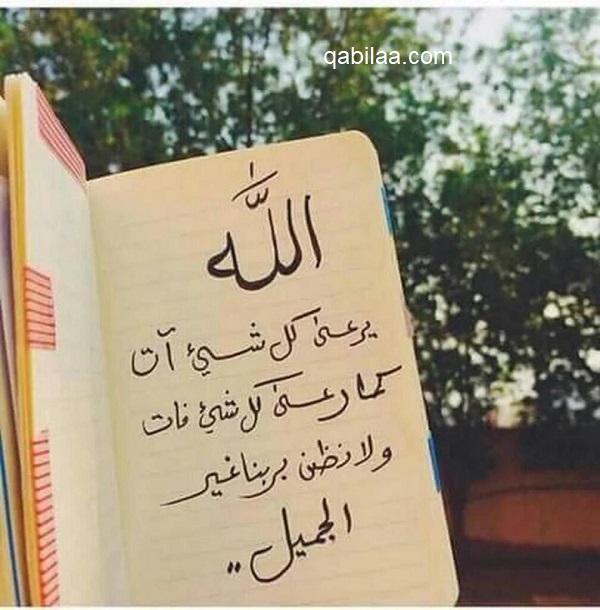 qabilaa.com
اللَّه
يرعىٰ كل شيئ آت
كما رعىٰ كل شيئ فات
ولا نظن بربنا غير
الجميل ..